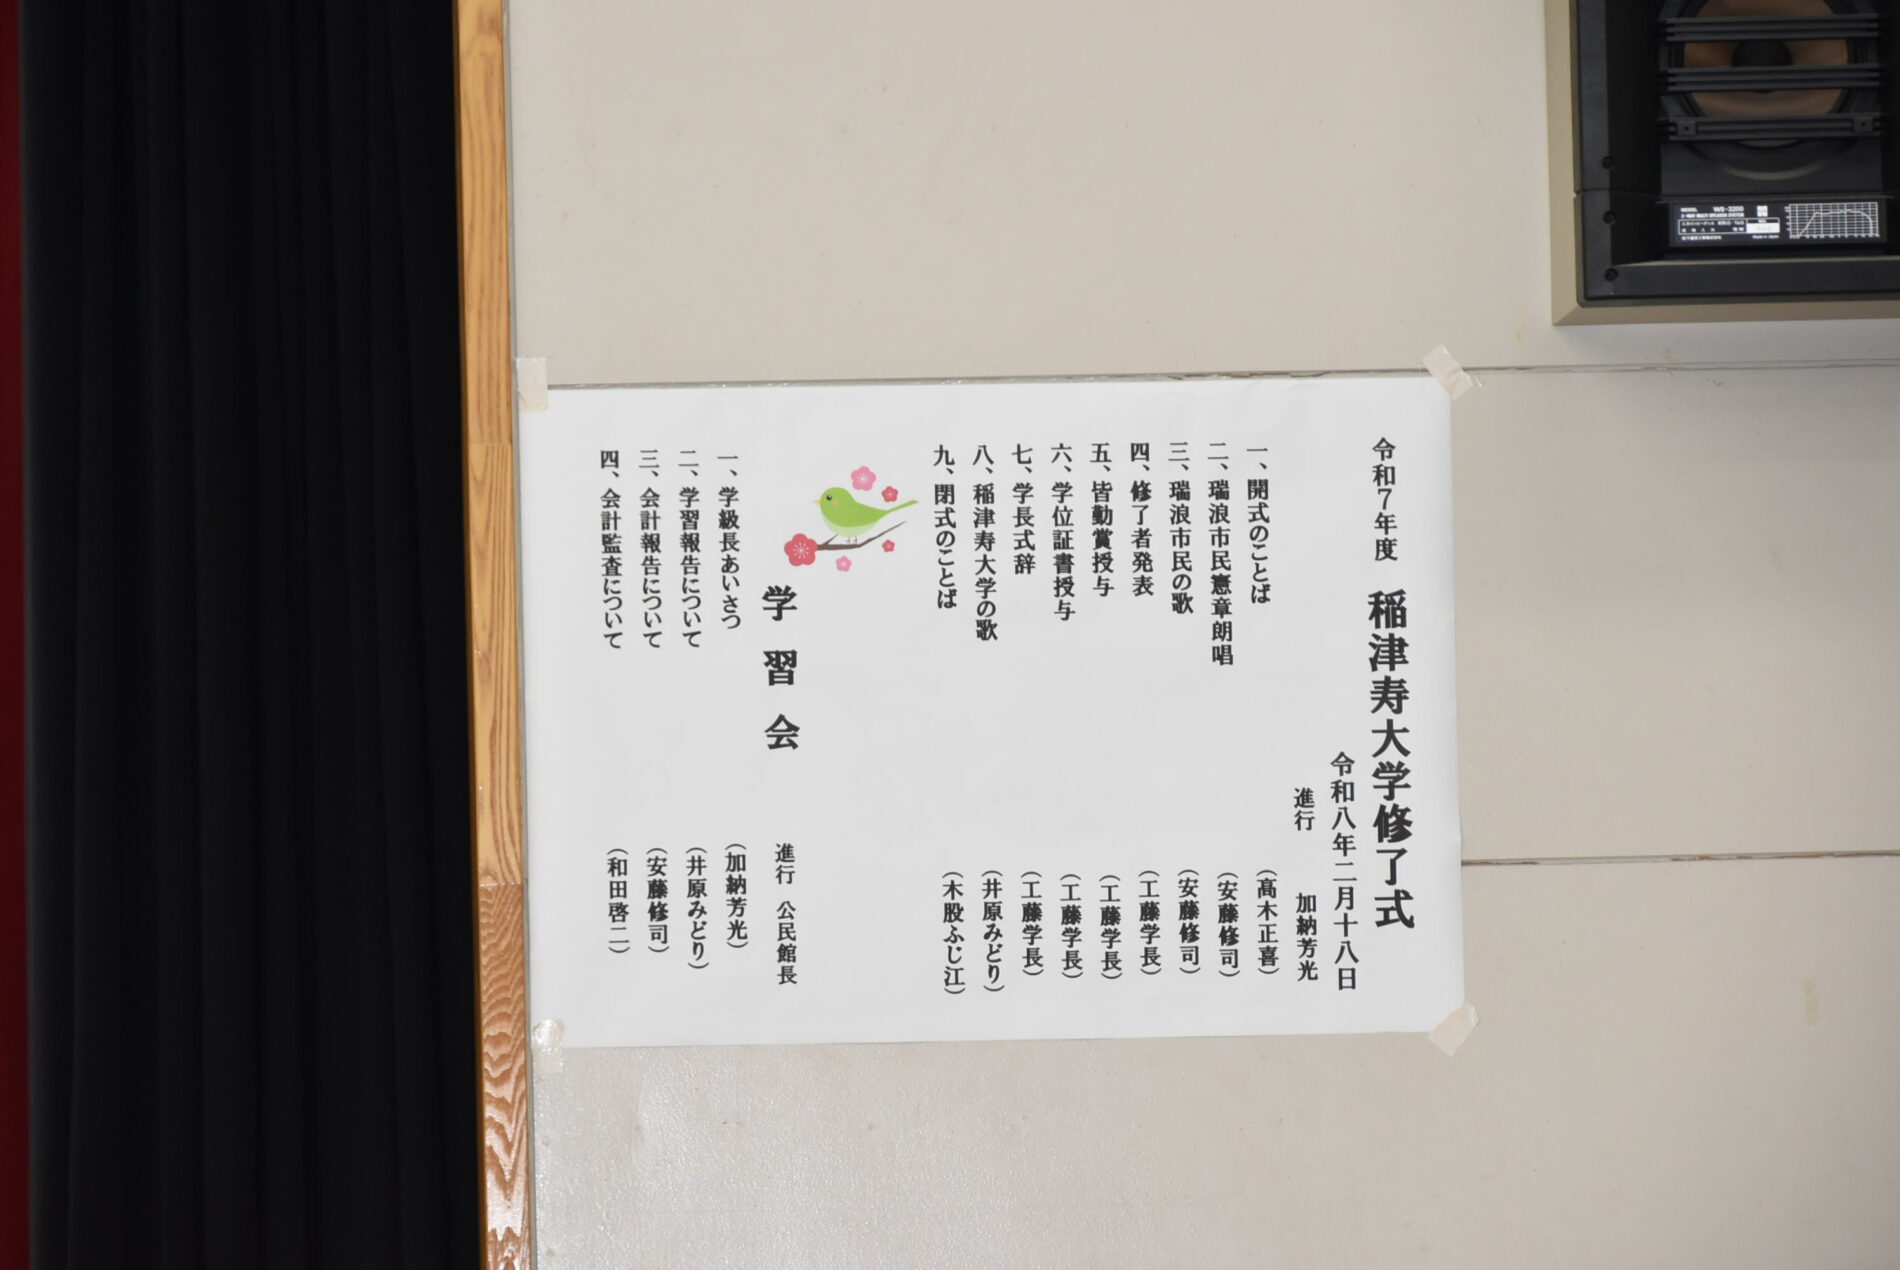 令和7年度 稲津寿大学修了式
令和八年二月十八日
進行 加納芳光
一、開式のことば (髙木正喜)
二、瑞浪市民憲章朗唱 (安藤修司)
三、瑞浪市民の歌 (安藤修司)
四、修了者発表 (工藤学長)
五、皆勤賞授与 (工藤学長)
六、学位証書授与 (工藤学長)
七、学長式辞 (工藤学長)
八、稲津寿大学の歌 (井原みどり)
九、閉式のことば (木股ふじ江)
学習会
進行 公民館長
一、学級長あいさつ (加納芳光)
二、学習報告について (井原みどり)
三、会計報告について (安藤修司)
四、会計監査について (和田啓二)
MODEL WS-3200
2-WAY MULTI SPEAKER SYSTEM
Made in Japan